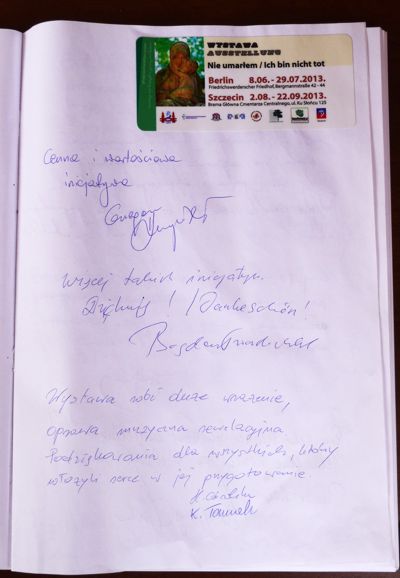 WYSTAWA
AUSSTELLUNG
Nie umarłem / Ich bin nicht tot
Berlin 8.06. - 29.07.2013.
Friedrichswerderscher Friedhof, Bergmannstraße 42 - 44
Szczecin 2.08. - 22.09.2013.
Brama Główna Cmentarza Centralnego, ul. Ku Słońcu 125
Cenna i wartościowa
inicjatywa
Więcej takich inicjatyw.
Dziękuję! / Dankeschön!
Bogdan
Wystawa robi duże wrażenie,
oprawa muzyczna rewelacyjna
Podziękowania dla wszystkich, którzy
włożyli serce w jej przygotowanie
K.